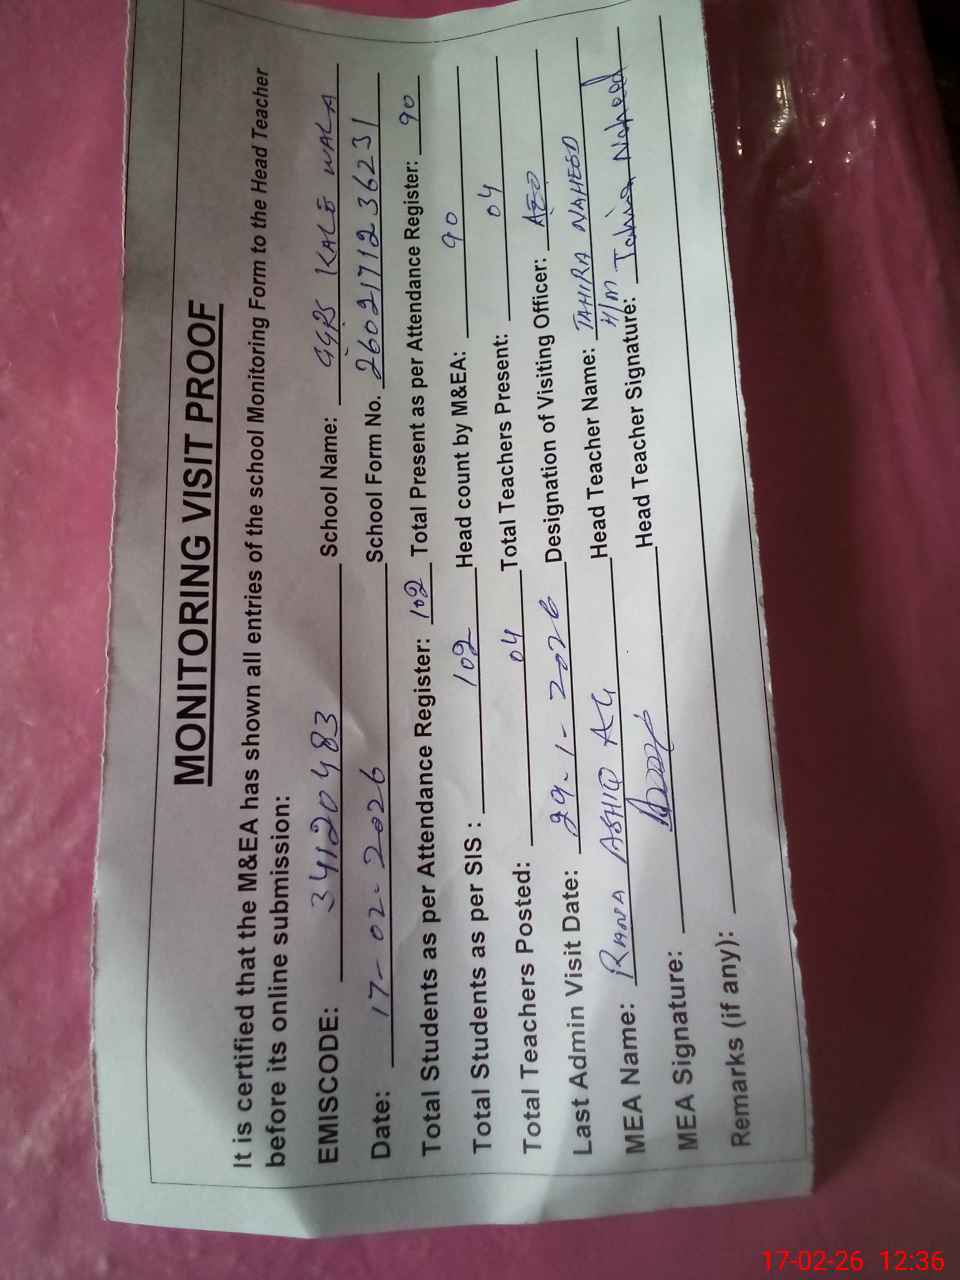 MONITORING VISIT PROOF
It is certified that the M&EA has shown all entries of the school Monitoring Form to the Head Teacher
before its online submission:
EMISCODE: 34120483 School Name: GGPS KALE WALA
Date: 17-02-2026 School Form No. 26021712 36231
Total Students as per Attendance Register: 102 Total Present as per Attendance Register: 90
Total Students as per SIS : 102 Head count by M&EA: 90
Total Teachers Posted: 04 Total Teachers Present: 04
Last Admin Visit Date: 29-1-2026 Designation of Visiting Officer: AEO
MEA Name: RANA ASHIQ ALI Head Teacher Name: TAHIRA NAHEED
MEA Signature: Head Teacher Signature: H/M Tahira Naheed
Remarks (if any):
17-02-26 12:36